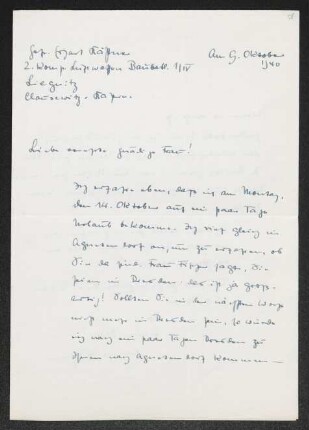 Gef. Erhart Kästner
Am 9. Oktober
1940
2. Komp. Luftwaffen Baubatl. 1/IV
Liegnitz
Clausewitz-Kaserne.
Liebe gnädige Frau!
Ich erfahre eben, dass ich am Montag,
dem 14. Oktober auf ein paar Tage
Urlaub bekomme. Ich rief gleich in
Agnetendorf an, um zu erfahren, ob
Sie da sind. Frau sagte, Sie
seien in Dresden. Das ist ja gross-
artig! Sollten Sie in der nächsten Woche
noch in Dresden sein, so würde
ich nach ein paar Tagen Dresden zu
Ihnen nach Agnetendorf kommen —